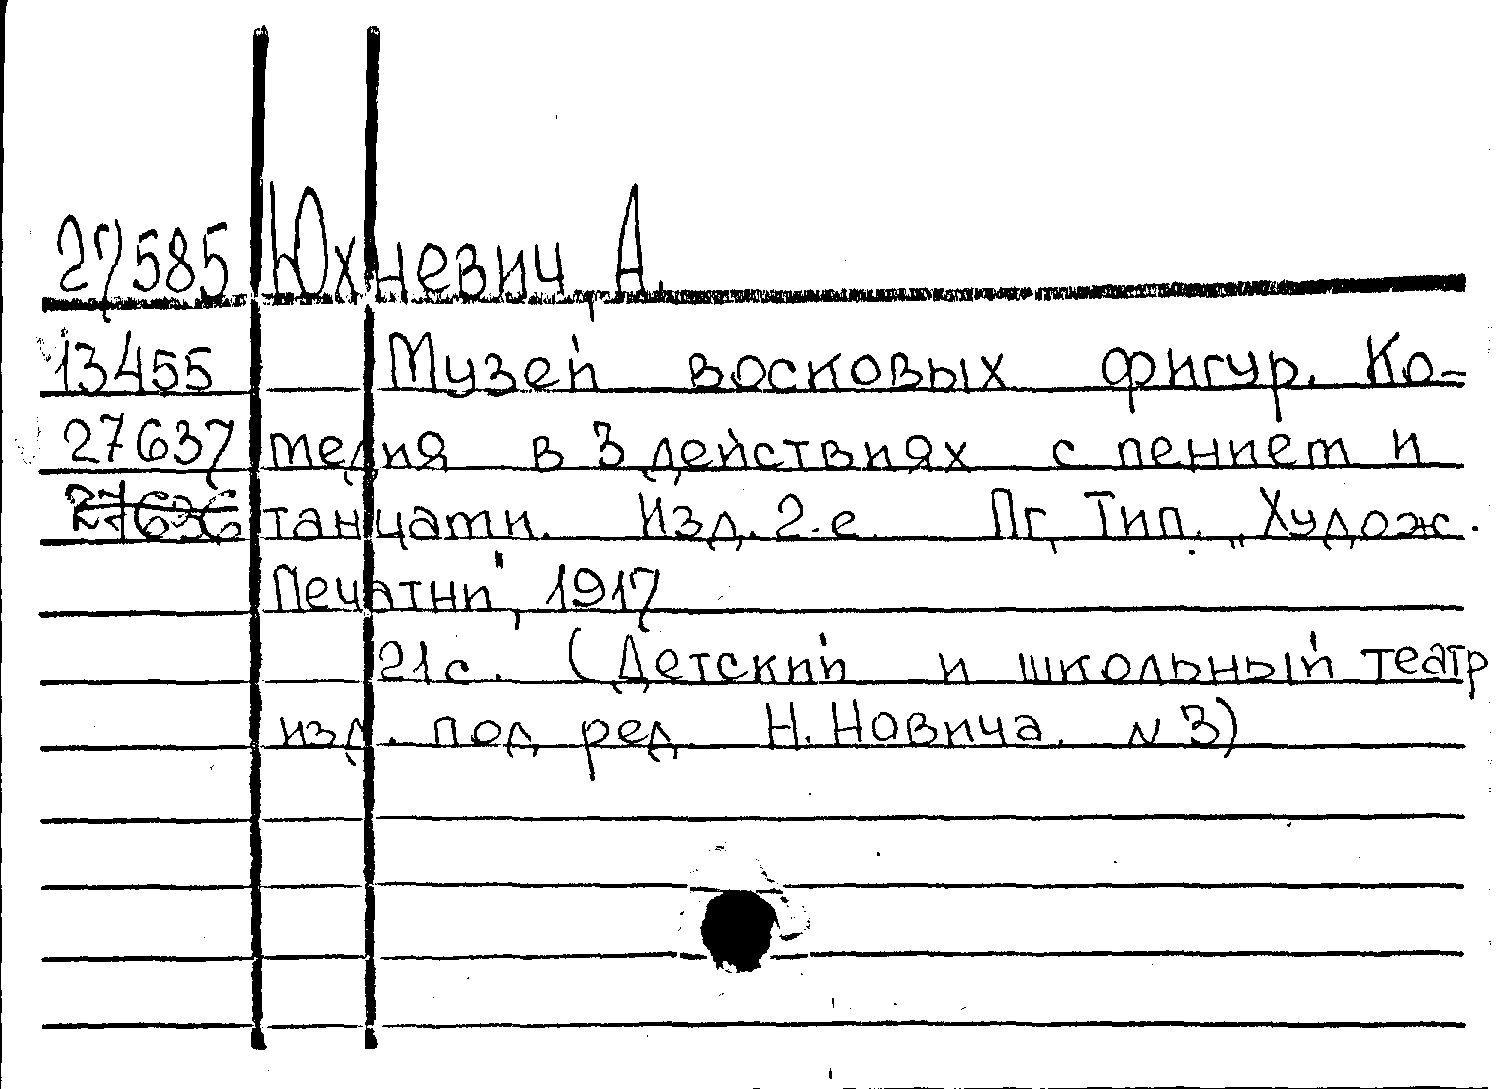 27585 Юхневич, А.
13455 Музей восковых фигур. Ко-
27637 медия в 3 действиях с пением и
27636 танцами. Изд. 2-е. Пг, Тип. „Худож.
Печатни", 1917
21 с. (Детский и школьный театр
изд. под ред. Н. Новича. N 3)